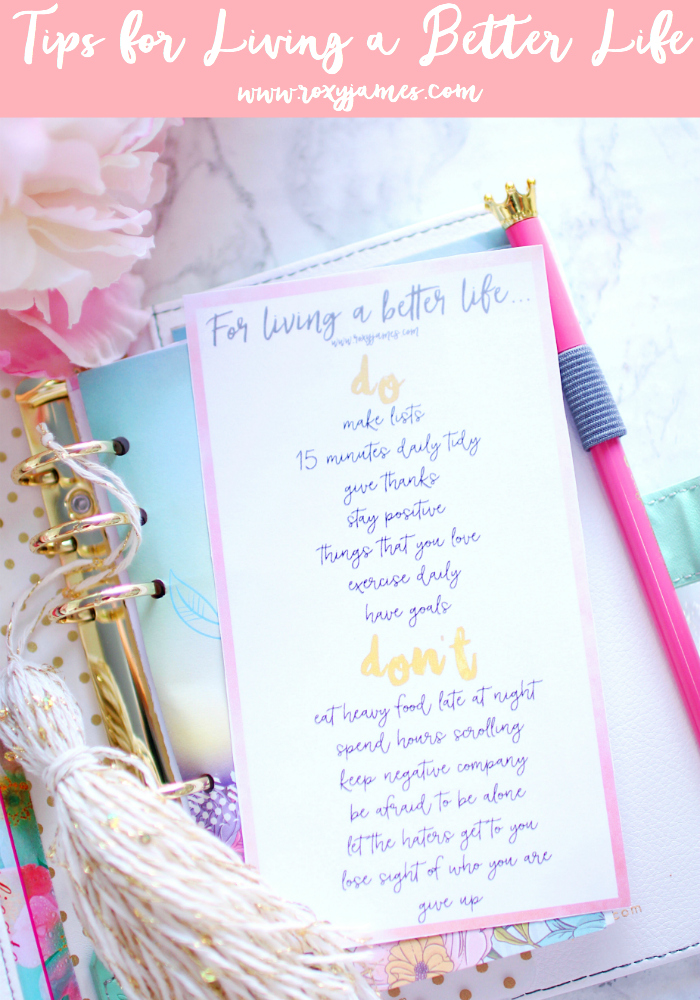 Tips for Living a Better Life
www.roxyjames.com
For living a better life...
www.roxyjames.com
do
make lists
15 minutes daily tidy
give thanks
stay positive
things that you love
exercise daily
have goals
don't
eat heavy food late at night
spend hours scrolling
keep negative company
be afraid to be alone
let the haters get to you
lose sight of who you are
give up
.com